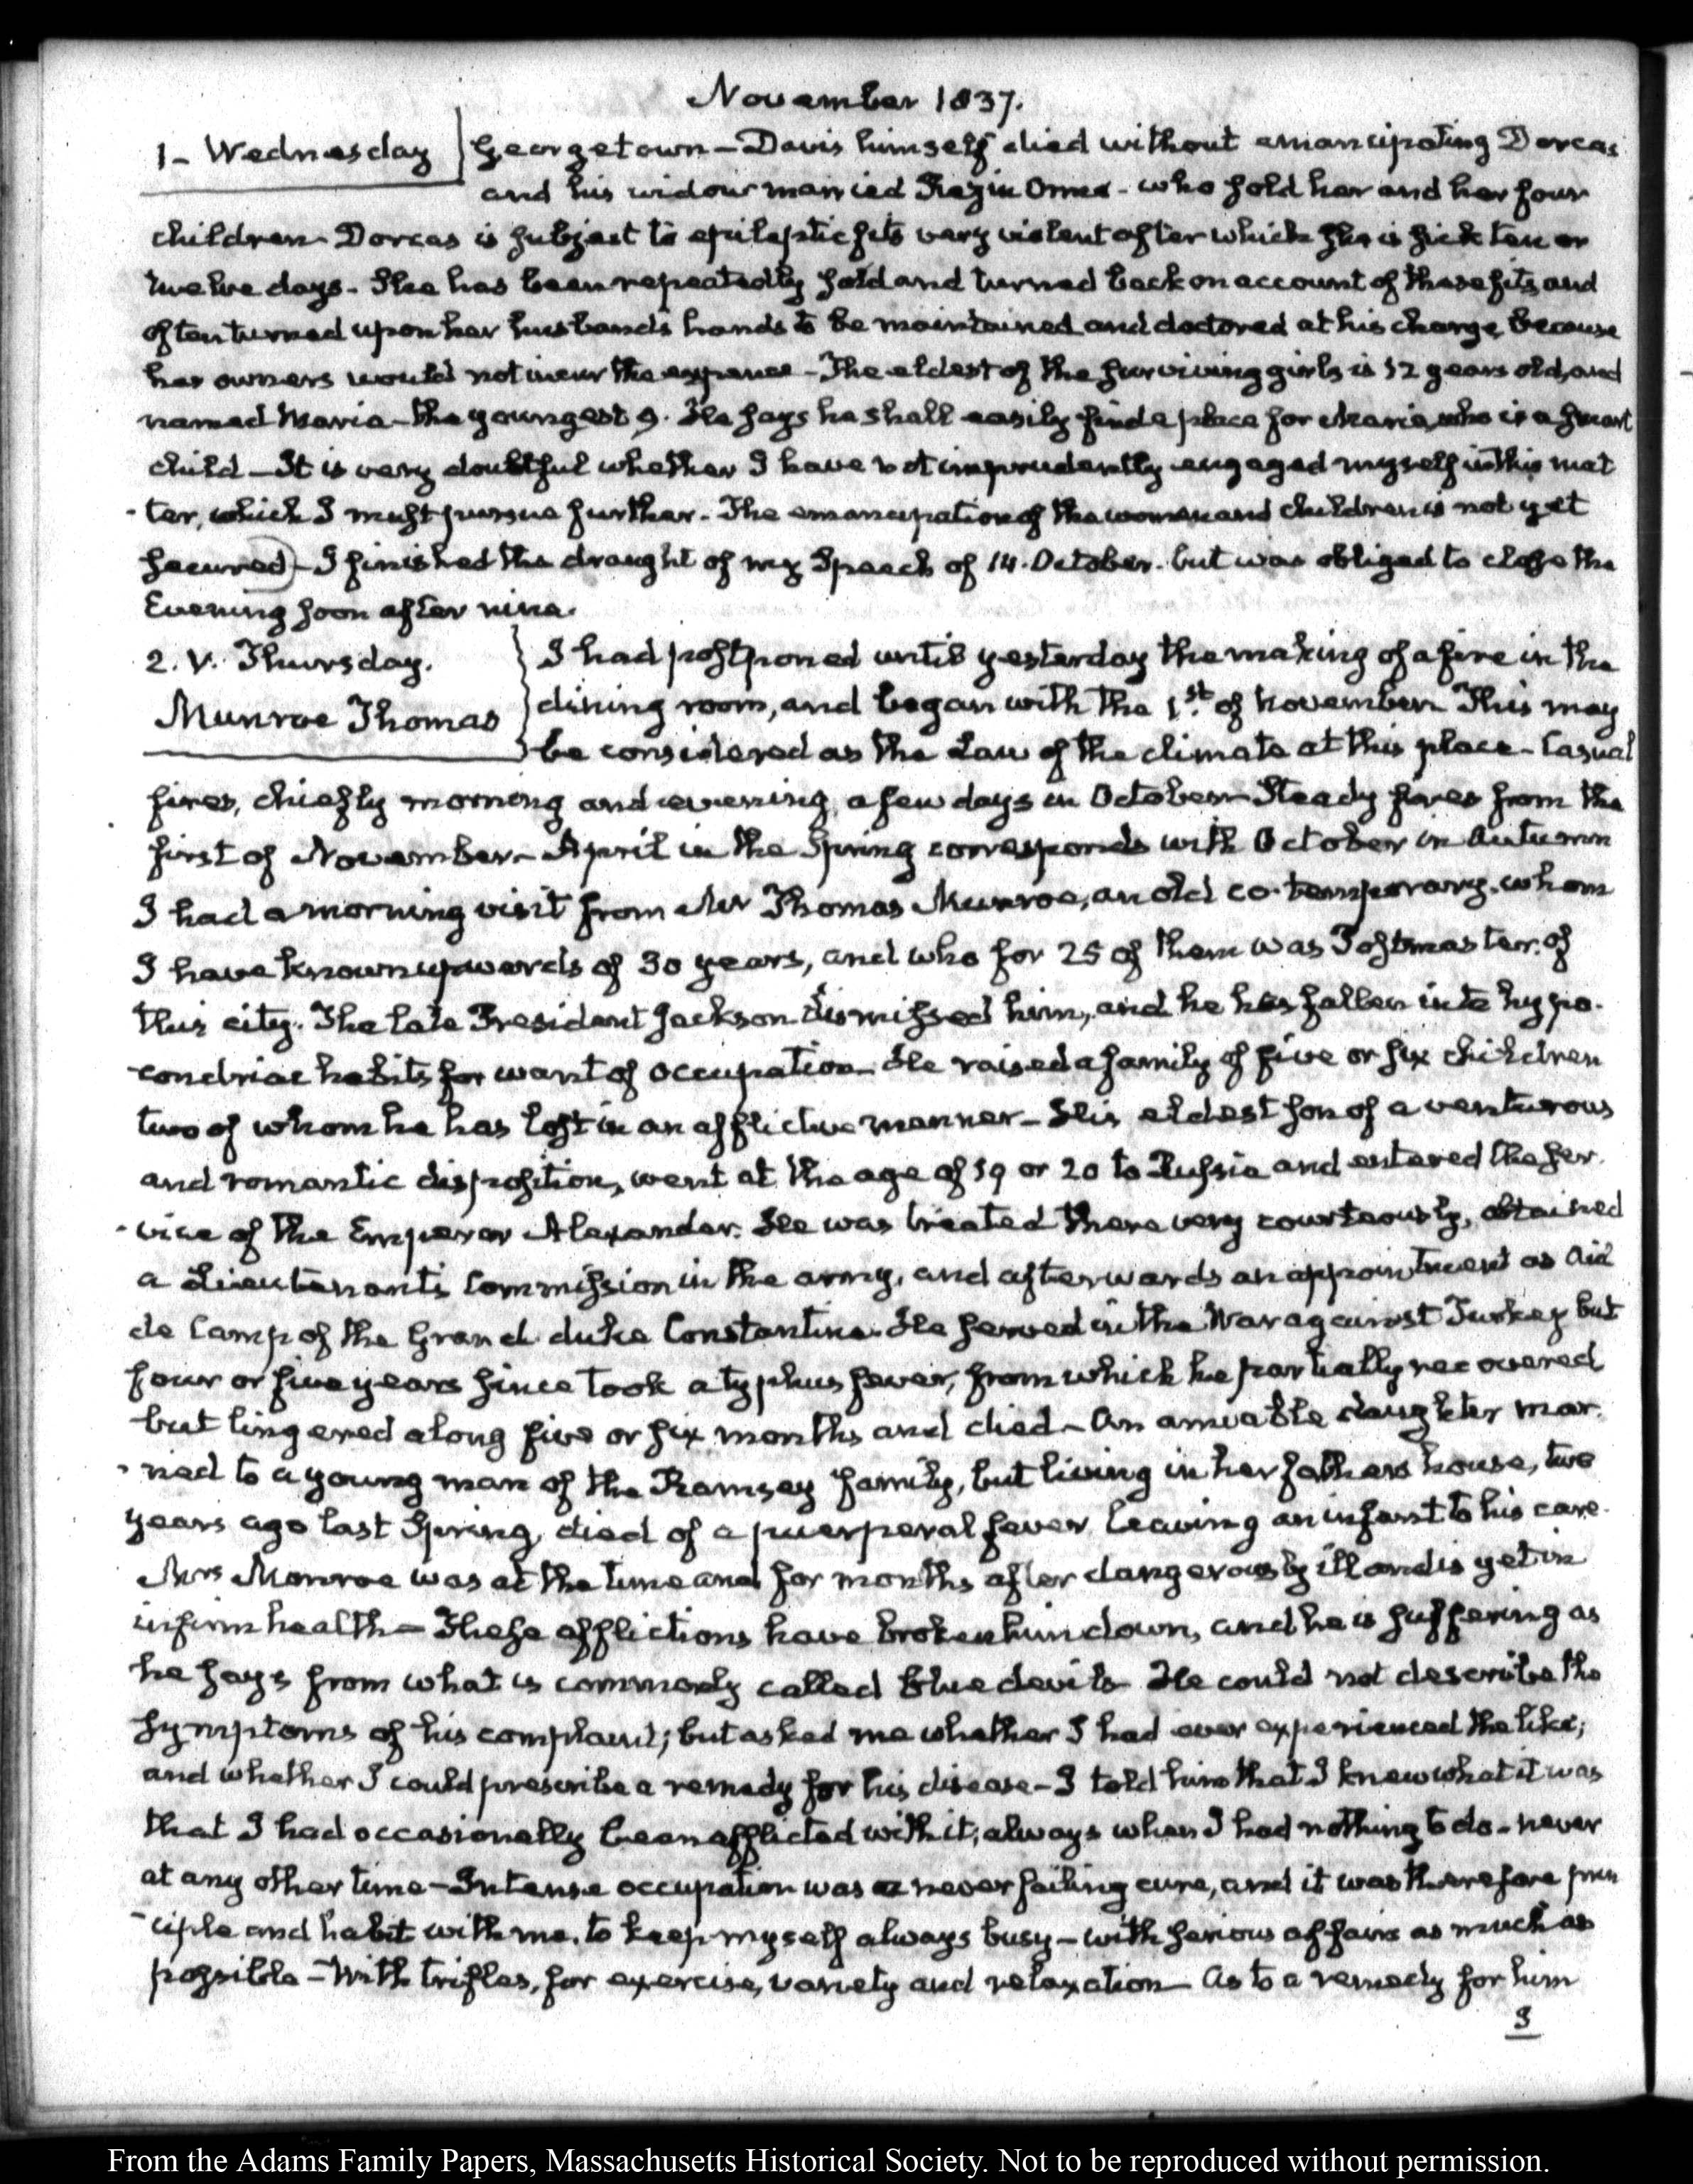 November 1837.
1- Wednesday
Georgetown - Davis himself died without emancipating Dorcas
and his widow married Rezin Orme - who sold her and her four
children - Dorcas is subject to epileptic fits very violent after which she is sick ten or
twelve days - She has been repeatedly sold and turned back on account of these fits, and
often turned upon her husband's hands to be maintained and doctored at his charge, because
her owners would not incur the expence - The eldest of the surviving girls is 12 years old, and
named Maria - the youngest 9. He says he shall easily find a place for Maria, who is a smart
child - It is very doubtful whether I have not imprudently engaged myself in this mat
-ter, which I must pursue further. - The emancipation of the woman and children is not yet
secured) - I finished the draught of my Speech of 14. October. but was obliged to close the
Evening soon after nine.
2. V. Thursday.
Munroe Thomas
I had postponed until yesterday the making of a fire in the
dining room, and began with the 1st. of November. This may
be considered as the Law of the climate at this place - Casual
fires, chiefly morning and evening, a few days in October - Steady fires from the
first of November - April in the Spring corresponds with October in Autumn
I had a morning visit from Mr Thomas Munroe, an old co-temporary, whom
I have known upwards of 30 years, and who for 25 of them was Postmaster of
this city. The late President Jackson dismissed him, and he has fallen into hypo-
-condriac habits for want of occupation - He raised a family of five or six children
two of whom he has lost in an afflictive manner - His eldest son of a venturous
and romantic disposition, went at the age of 19 or 20 to Russia and entered the ser-
-vice of the Emperor Alexander. He was treated there very courteously, obtained
a Lieutenant's Commission in the army, and afterwards an appointment as Aid
de Camp of the Grand duke Constantine. He served in the War against Turkey but
four or five years since took a typhus fever, from which he partially recovered
but lingered along five or six months and died - An amiable daughter mar-
-ried to a young man of the Ramsay family, but living in her fathers house, two
years ago last Spring, died of a puerperal fever, leaving an infant to his care.
Mrs Monroe was at the time and for months after dangerously ill and is yet in
infirm health - These afflictions have broken him down, and he is suffering as
he says from what is commonly called blue devils - He could not describe the
symptoms of his complaint; but asked me whether I had ever experienced the like;
and whether I could prescribe a remedy for his disease - I told him that I knew what it was
that I had occasionally been afflicted with it; always when I had nothing to do - never
at any other time - Intense occupation was a never failing cure, and it was therefore prin
-ciple and habit with me, to keep myself always busy - with serious affairs as much as
possible - With trifles, for exercise, variety and relaxation - As to a remedy for him
I
From the Adams Family Papers, Massachusetts Historical Society. Not to be reproduced without permission.